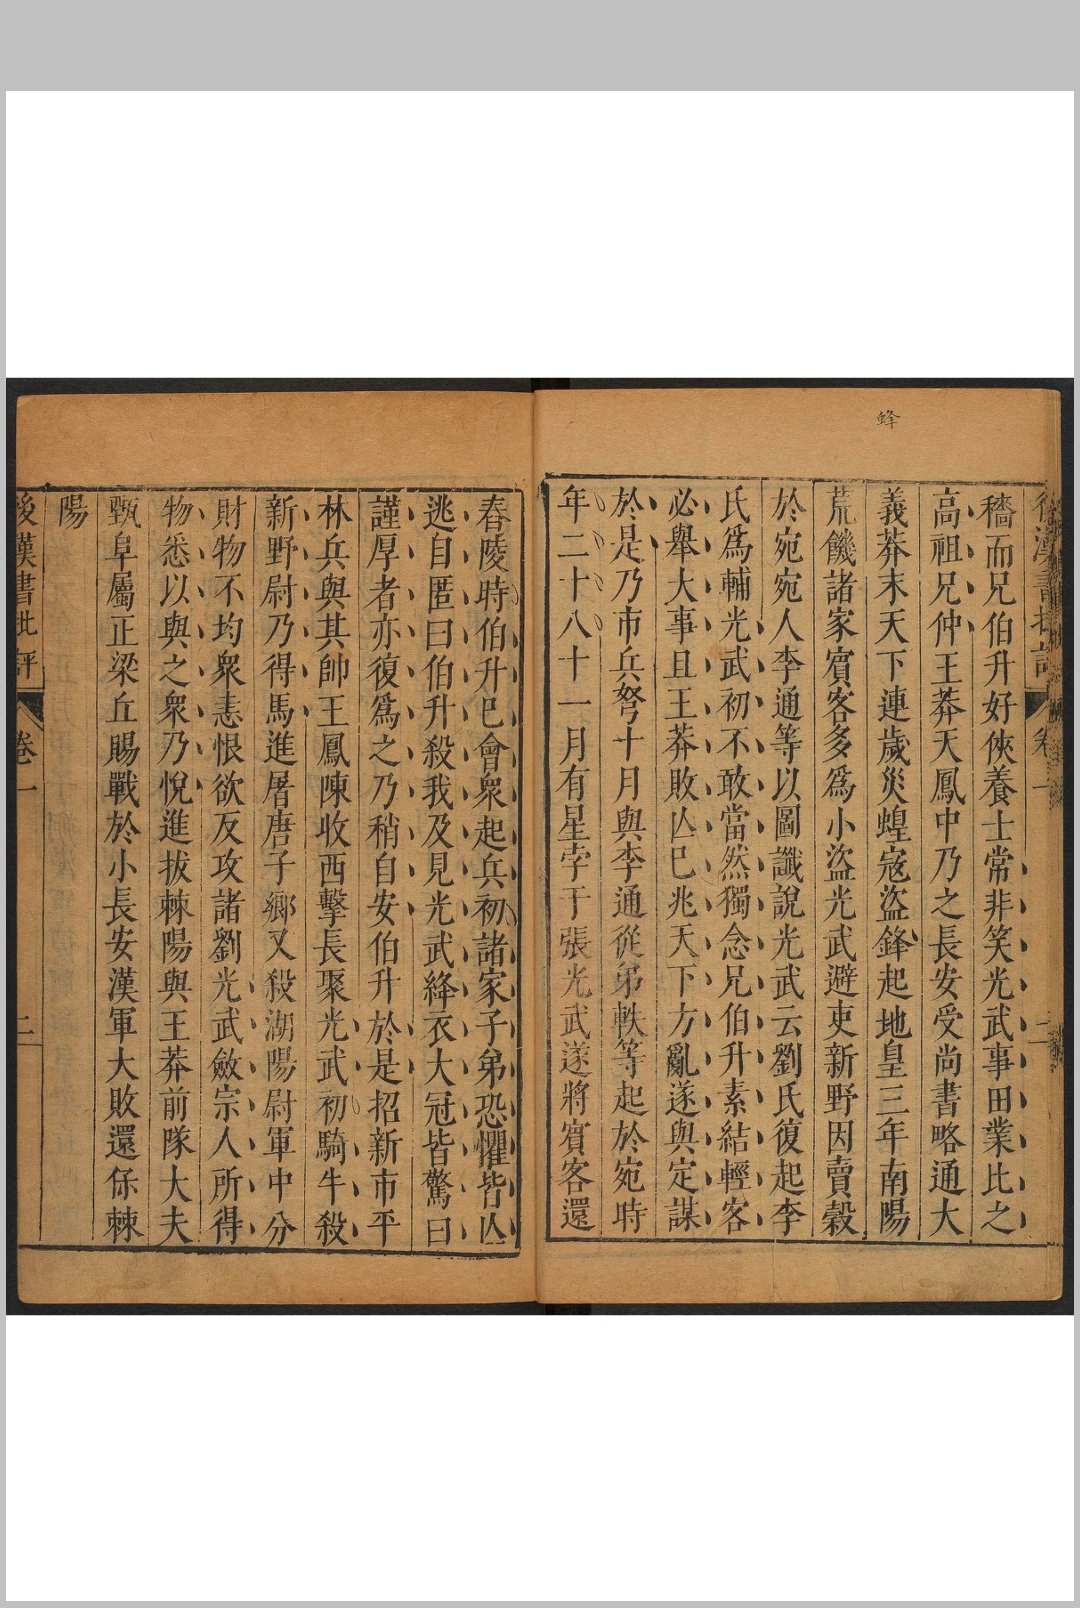 蜂
後漢書批評 卷一 二
穡而兄伯升好俠養士常非笑光武事田業比之
高祖兄仲王莽天鳳中乃之長安受尚書略通大
義莽末天下連歲災蝗寇盜鋒起地皇三年南陽
荒饑諸家賓客多爲小盜光武避吏新野因賣穀
於宛宛人李通等以圖讖說光武云劉氏復起李
氏爲輔光武初不敢當然獨念兄伯升素結輕客
必舉大事且王莽敗亾已兆天下方亂遂與定謀
於是乃市兵弩十月與李通從弟軼等起於宛時
年二十八十一月有星孛于張光武遂將賓客還
舂陵時伯升已會衆起兵初諸家子弟恐懼皆亾
逃自匿曰伯升殺我及見光武絳衣大冠皆驚曰
謹厚者亦復爲之乃稍自安伯升於是招新市平
林兵與其帥王鳳陳收西擊長聚光武初騎牛殺
新野尉乃得馬進屠唐子鄉又殺湖陽尉軍中分
財物不均衆恚恨欲反攻諸劉光武斂宗人所得
物悉以與之衆乃悅進拔棘陽與王莽前隊大夫
甄阜屬正梁丘賜戰於小長安漢軍大敗還保棘
陽
後漢書批評 卷一 二